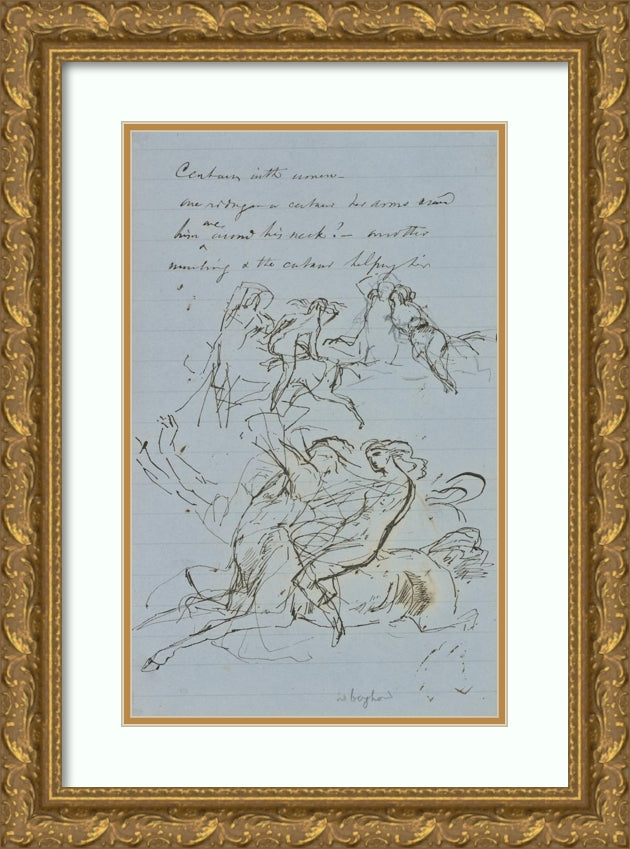 Centaurs with women –
one riding on a centaur her arms around
him one around his neck? – another
mounting & the centaur helping her